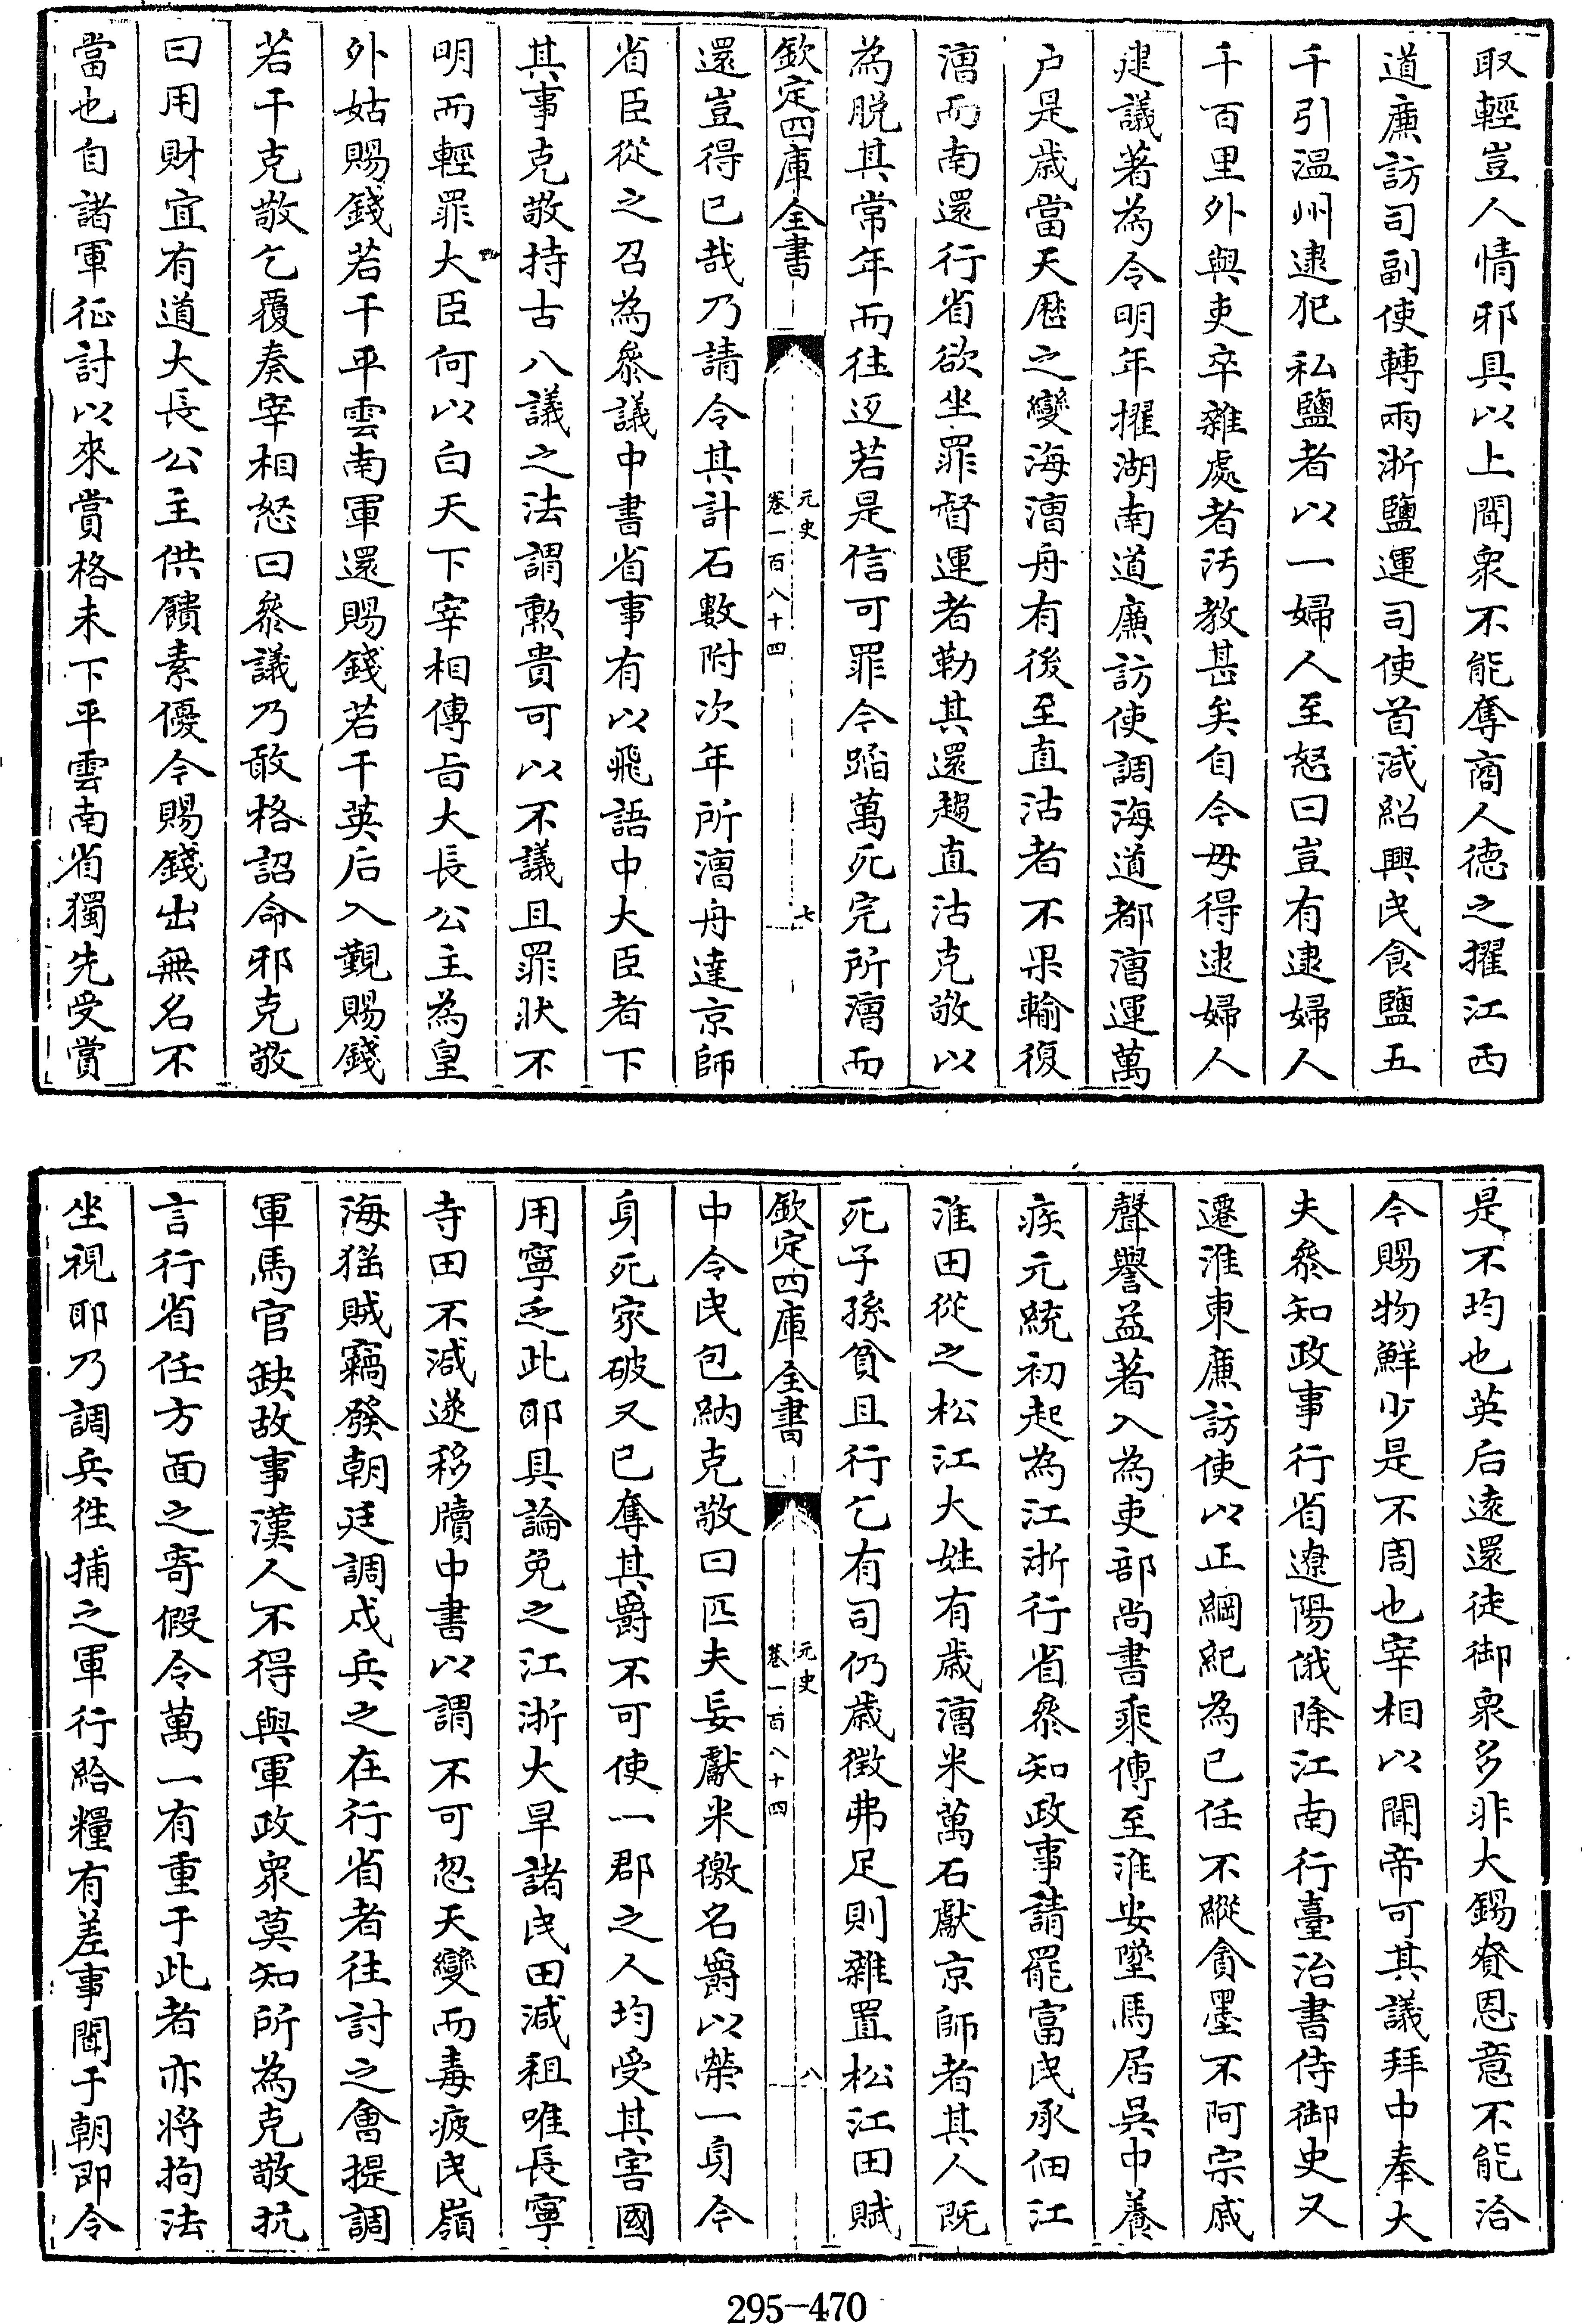 取輕豈人情邪具以上聞衆不能奪商人德之擢江西
道廉訪司副使轉兩浙鹽運司使首減紹興民食鹽五
千引温州逮犯私鹽者以一婦人至怒曰豈有逮婦人
千百里外與吏卒雜處者汚教甚矣自今毋得逮婦人
建議著為令明年擢湖南道廉訪使調海道都漕運萬
户是歲當天厯之變海漕舟有後至直沽者不果輸復
漕而南還行省欲坐罪督運者勒其還趨直沽克敬以
為脱其常年而往返若是信可罪今蹈萬死完所漕而
欽定四庫全書
元史
卷一百八十四
七
還豈得已哉乃請令其計石數附次年所漕舟達京師
省臣從之召為參議中書省事有以飛語中大臣者下
其事克敬持古八議之法謂勲貴可以不議且罪狀不
明而輕罪大臣何以白天下宰相傳旨大長公主為皇
外姑賜錢若干平雲南軍還賜錢若干英后入覲賜錢
若干克敬乞覆奏宰相怒曰參議乃敢格詔命邪克敬
曰用財宜有道大長公主供饋素優今賜錢出無名不
當也自諸軍征討以來賞格未下平雲南省獨先受賞
是不均也英后逺還徒御衆多非大錫賚恩意不能洽
今賜物鮮少是不周也宰相以聞帝可其議拜中奉大
夫參知政事行省遼陽俄除江南行臺治書侍御史又
遷淮東廉訪使以正綱紀為已任不縱貪墨不阿宗戚
聲譽益著入為吏部尚書乘傳至淮安墜馬居吳中養
疾元統初起為江浙行省參知政事請罷富民承佃江
淮田從之松江大姓有歲漕米萬石獻京師者其人既
死子孫貧且行乞有司仍歲徵弗足則雜置松江田賦
欽定四庫全書
元史
卷一百八十四
八
中令民包納克敬曰匹夫妄獻米徼名爵以榮一身今
身死家破又已奪其爵不可使一郡之人均受其害國
用寧乏此耶具論免之江浙大旱諸民田減租唯長寧
寺田不減遂移牘中書以謂不可忽天變而毒疲民嶺
海猺賊竊發朝廷調戍兵之在行省者往討之會提調
軍馬官缺故事漢人不得與軍政衆莫知所為克敬抗
言行省任方面之寄假令萬一有重于此者亦將拘法
坐視耶乃調兵徃捕之軍行給糧有差事聞于朝即令
295-470